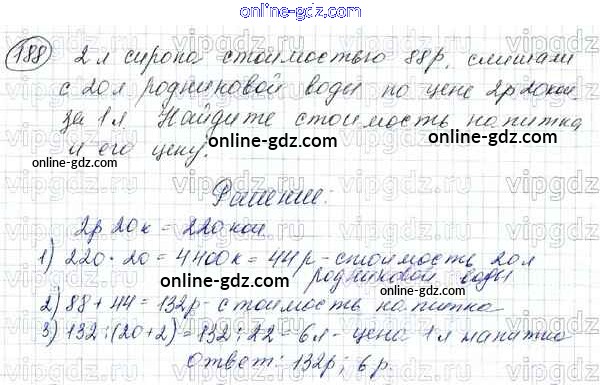 online-gdz.com
188 2 л сиропа стоимостью 88р, смешали
с 20л родниковой воды по цене 2р 20коп
за 1 л. Найдите стоимость напитка
и его цену.
online-gdz.com
online-gdz.com
online-gdz.com
Решение:
2р 20к = 220коп
1) 220 · 20 = 4400к = 44р - стоимость 20л
родниковой воды
online-gdz.com
online-gdz.com
2) 88 + 44 = 132р - стоимость напитка
3) 132 : (20+2) = 132 : 22 = 6л - цена 1л напитка
Ответ: 132р; 6р.
online-gdz.com